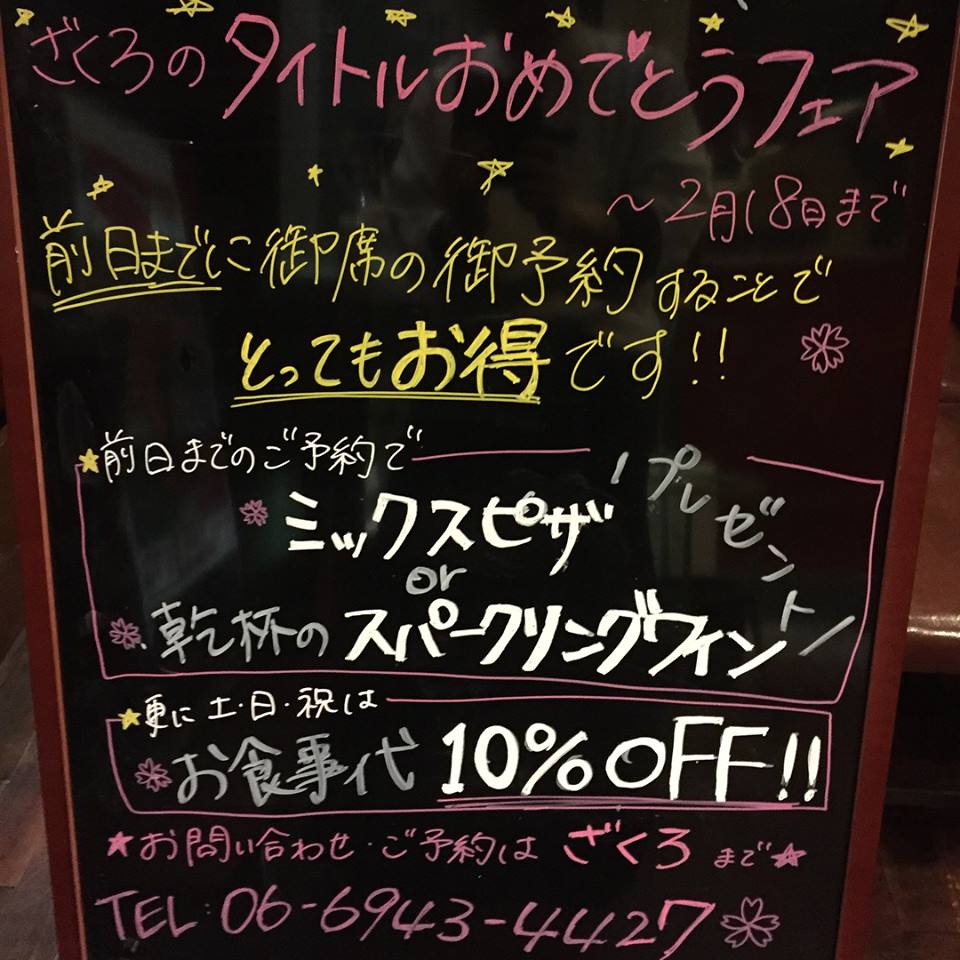 ざくろの タイトルおめでとうフェア
～2月18日まで
前日までに御席の御予約することで
とってもお得です!!
★前日までのご予約で
ミックスピザ
or
乾杯のスパークリングワイン
プレゼント
★更に土・日・祝は
お食事代 10%OFF!!
★お問い合わせ・ご予約は ざくろ まで★
TEL:06-6943-4427